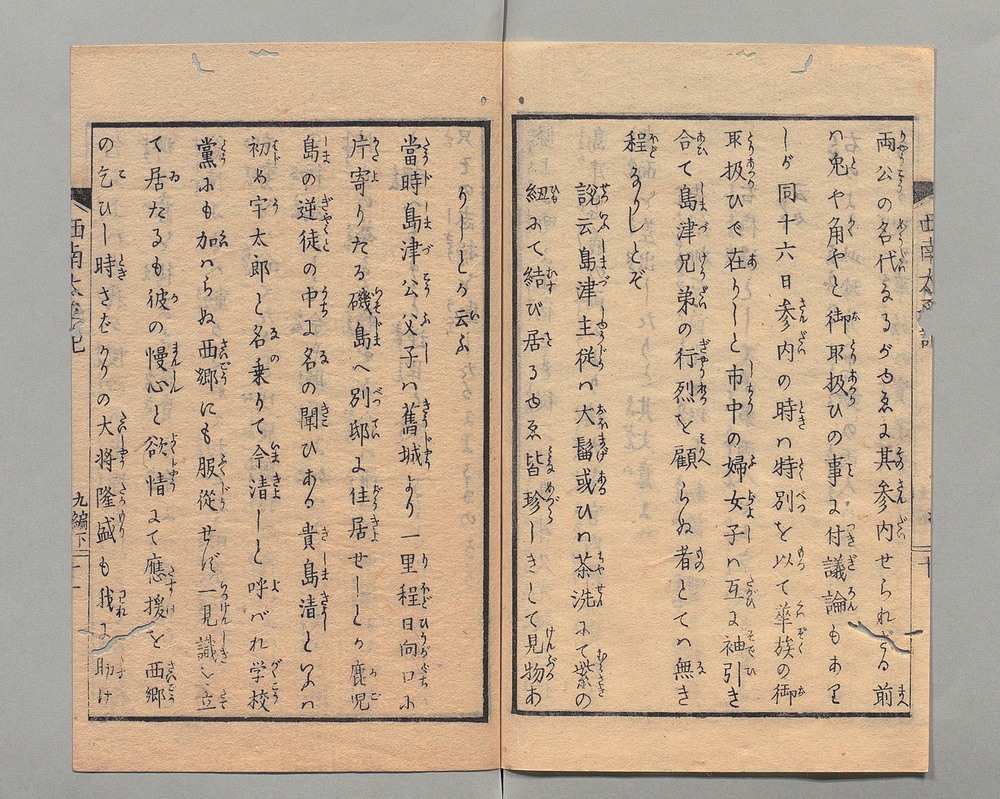 両公の名代なるがゆゑに其参内せられざる前
ハ兎や角やと御取扱ひの事に付議論もありし
しが同十六日参内の時ハ特別を以て華族の御
取扱ひで在りしと市中の婦女子ハ互に袖引き
合て島津兄弟の行烈を顧らぬ者とてハ無き
程なりしとぞ
説云島津主従ハ大髷或ひハ茶洗にて紫の
紐にて結び居るゆゑ皆珍しきして見物あ
りしとか云ふ
當時島津公父子ハ舊城より一里程日向口に
片寄りたる磯島へ別邸に住居せしとか鹿児
島の逆徒の中に名の聞ひある貴島清といふハ
初め宇太郎と名乗りて今清しと呼バれ学校
黨にも加ハらぬ西郷にも服從せず一見識を立
て居たるも彼の慢心と欲情にて應援を西郷
の乞ひし時さばかりの大将隆盛も我に助け
西南太平記
九編下
十一